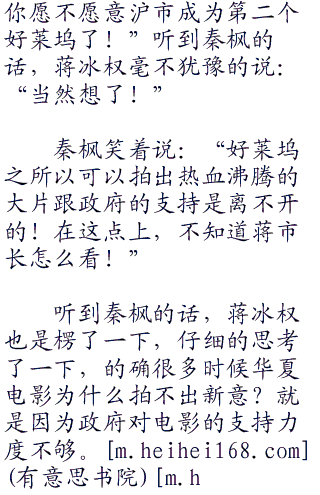 你愿不愿意沪市成为第二个
好莱坞了！”听到秦枫的
话，蒋冰权毫不犹豫的说：
“当然想了！”
秦枫笑着说：“好莱坞
之所以可以拍出热血沸腾的
大片跟政府的支持是离不开
的！在这点上，不知道蒋市
长怎么看！”
听到秦枫的话，蒋冰权
也是楞了一下，仔细的思考
了一下，的确很多时候华夏
电影为什么拍不出新意？就
是因为政府对电影的支持力
度不够。[m.heihei168.com]
(有意思书院)[m.h